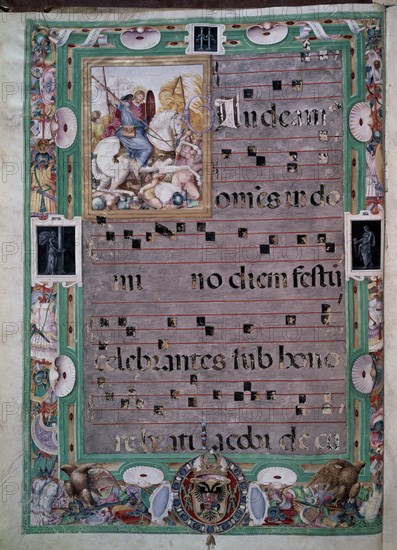 audeamus
omēs in do
mi no diem festū
celebrantes sub hono
re beati jacobi de cu